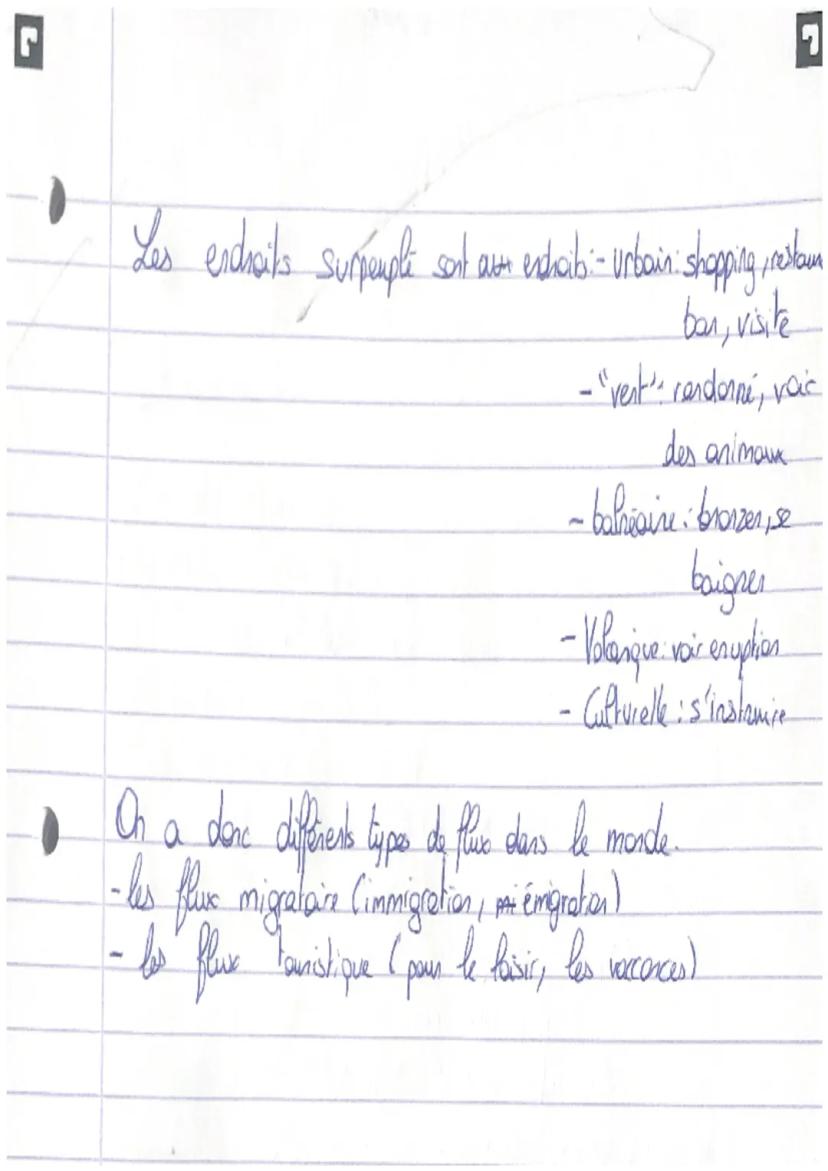 Les endroits surpeuplé sont endroits: - urbain: shopping, restau
bar, visite
- "vert": randonné, voir
des animaux
- balnéaire: bronzer, se
baigner
- Volcanique: voir eruption
- Culturelle: s'instruire
On a donc différents types de flux dans le monde.
- les flux migratoire (immigration, émigration)
- les flux touristique (pour le loisir, les vaccances)